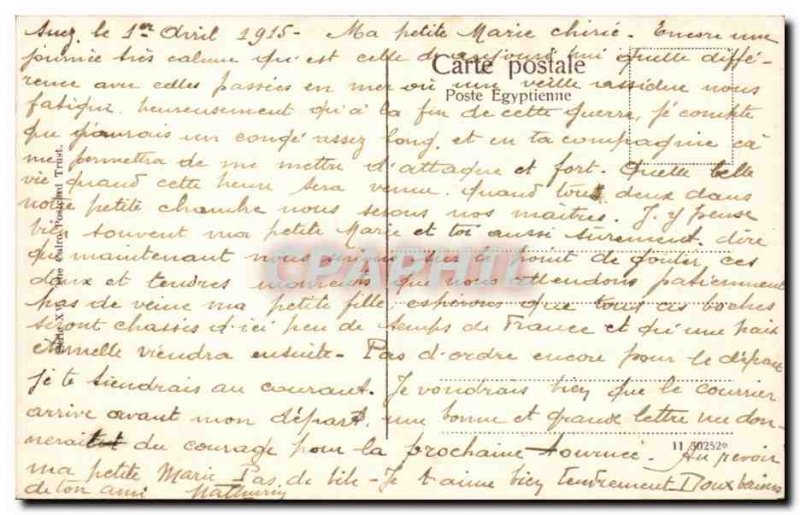 Suez. le 1er Avril 1915 - Ma petite Marie chérie. Encore une
journée très calme qu'est celle d'aujourd'hui quelle diffé-
Carte postale
rence avec celles passées en mer où une veille assidue nous
Poste Egyptienne
fatigue. heureusement qu'à la fin de cette guerre, je compte
que j'aurais un congé assez long. et en ta compagnie ça
me permettra de me mettre d'attaque et fort. Quelle belle
vie quand cette heure sera venue. quand tous deux dans
notre petite chambre nous serons nos maîtres. J'y pense
bien souvent ma petite Marie et toi aussi sûrement. dire
que maintenant nous sur le point de goûter ces
doux et tendres moments que nous attendons patiemment
pas de veine ma petite fille - espérons que tous ces boches
seront chassés d'ici peu de temps de France et qu'une paix
viendra ensuite - Pas d'ordre encore pour le départ
je te tiendrais au courant. Je voudrais bien que le courrier
arrive avant mon départ, une bonne et grande lettre me don-
nerait du courage pour la prochaine tournée. Au revoir
ma petite Marie Pas de bile - Je t'aime bien tendrement - Doux baisers
de ton ami Mathurin
The Cairo Postcard Trust.
CPAPHIL
11 302520